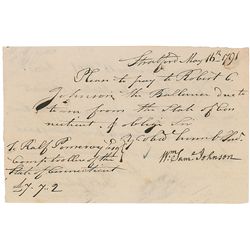 Stratford May 16th. 1791
Please to pay to Robert C.
Johnson the Ballance due to
from the State of Con
necticut & oblige Sir
Yr. obedt. humble Servt.
Wm. Saml. Johnson
To Ralf Pomeroy Esqr.
Comptroller of the
State of Connecticut
£7.7.2